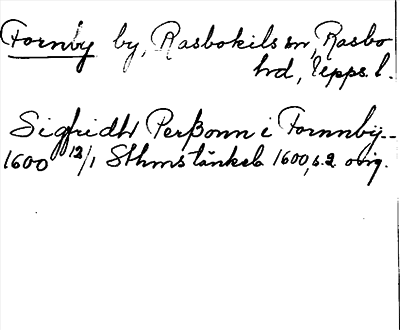 Fornby by, Rasbokils sn, Rasbo
hrd, Upps. l.
Sigfridh Perßonn i Fornnby.
1600 12/1 Sthms tänkeb 1600, s. 2 orig.